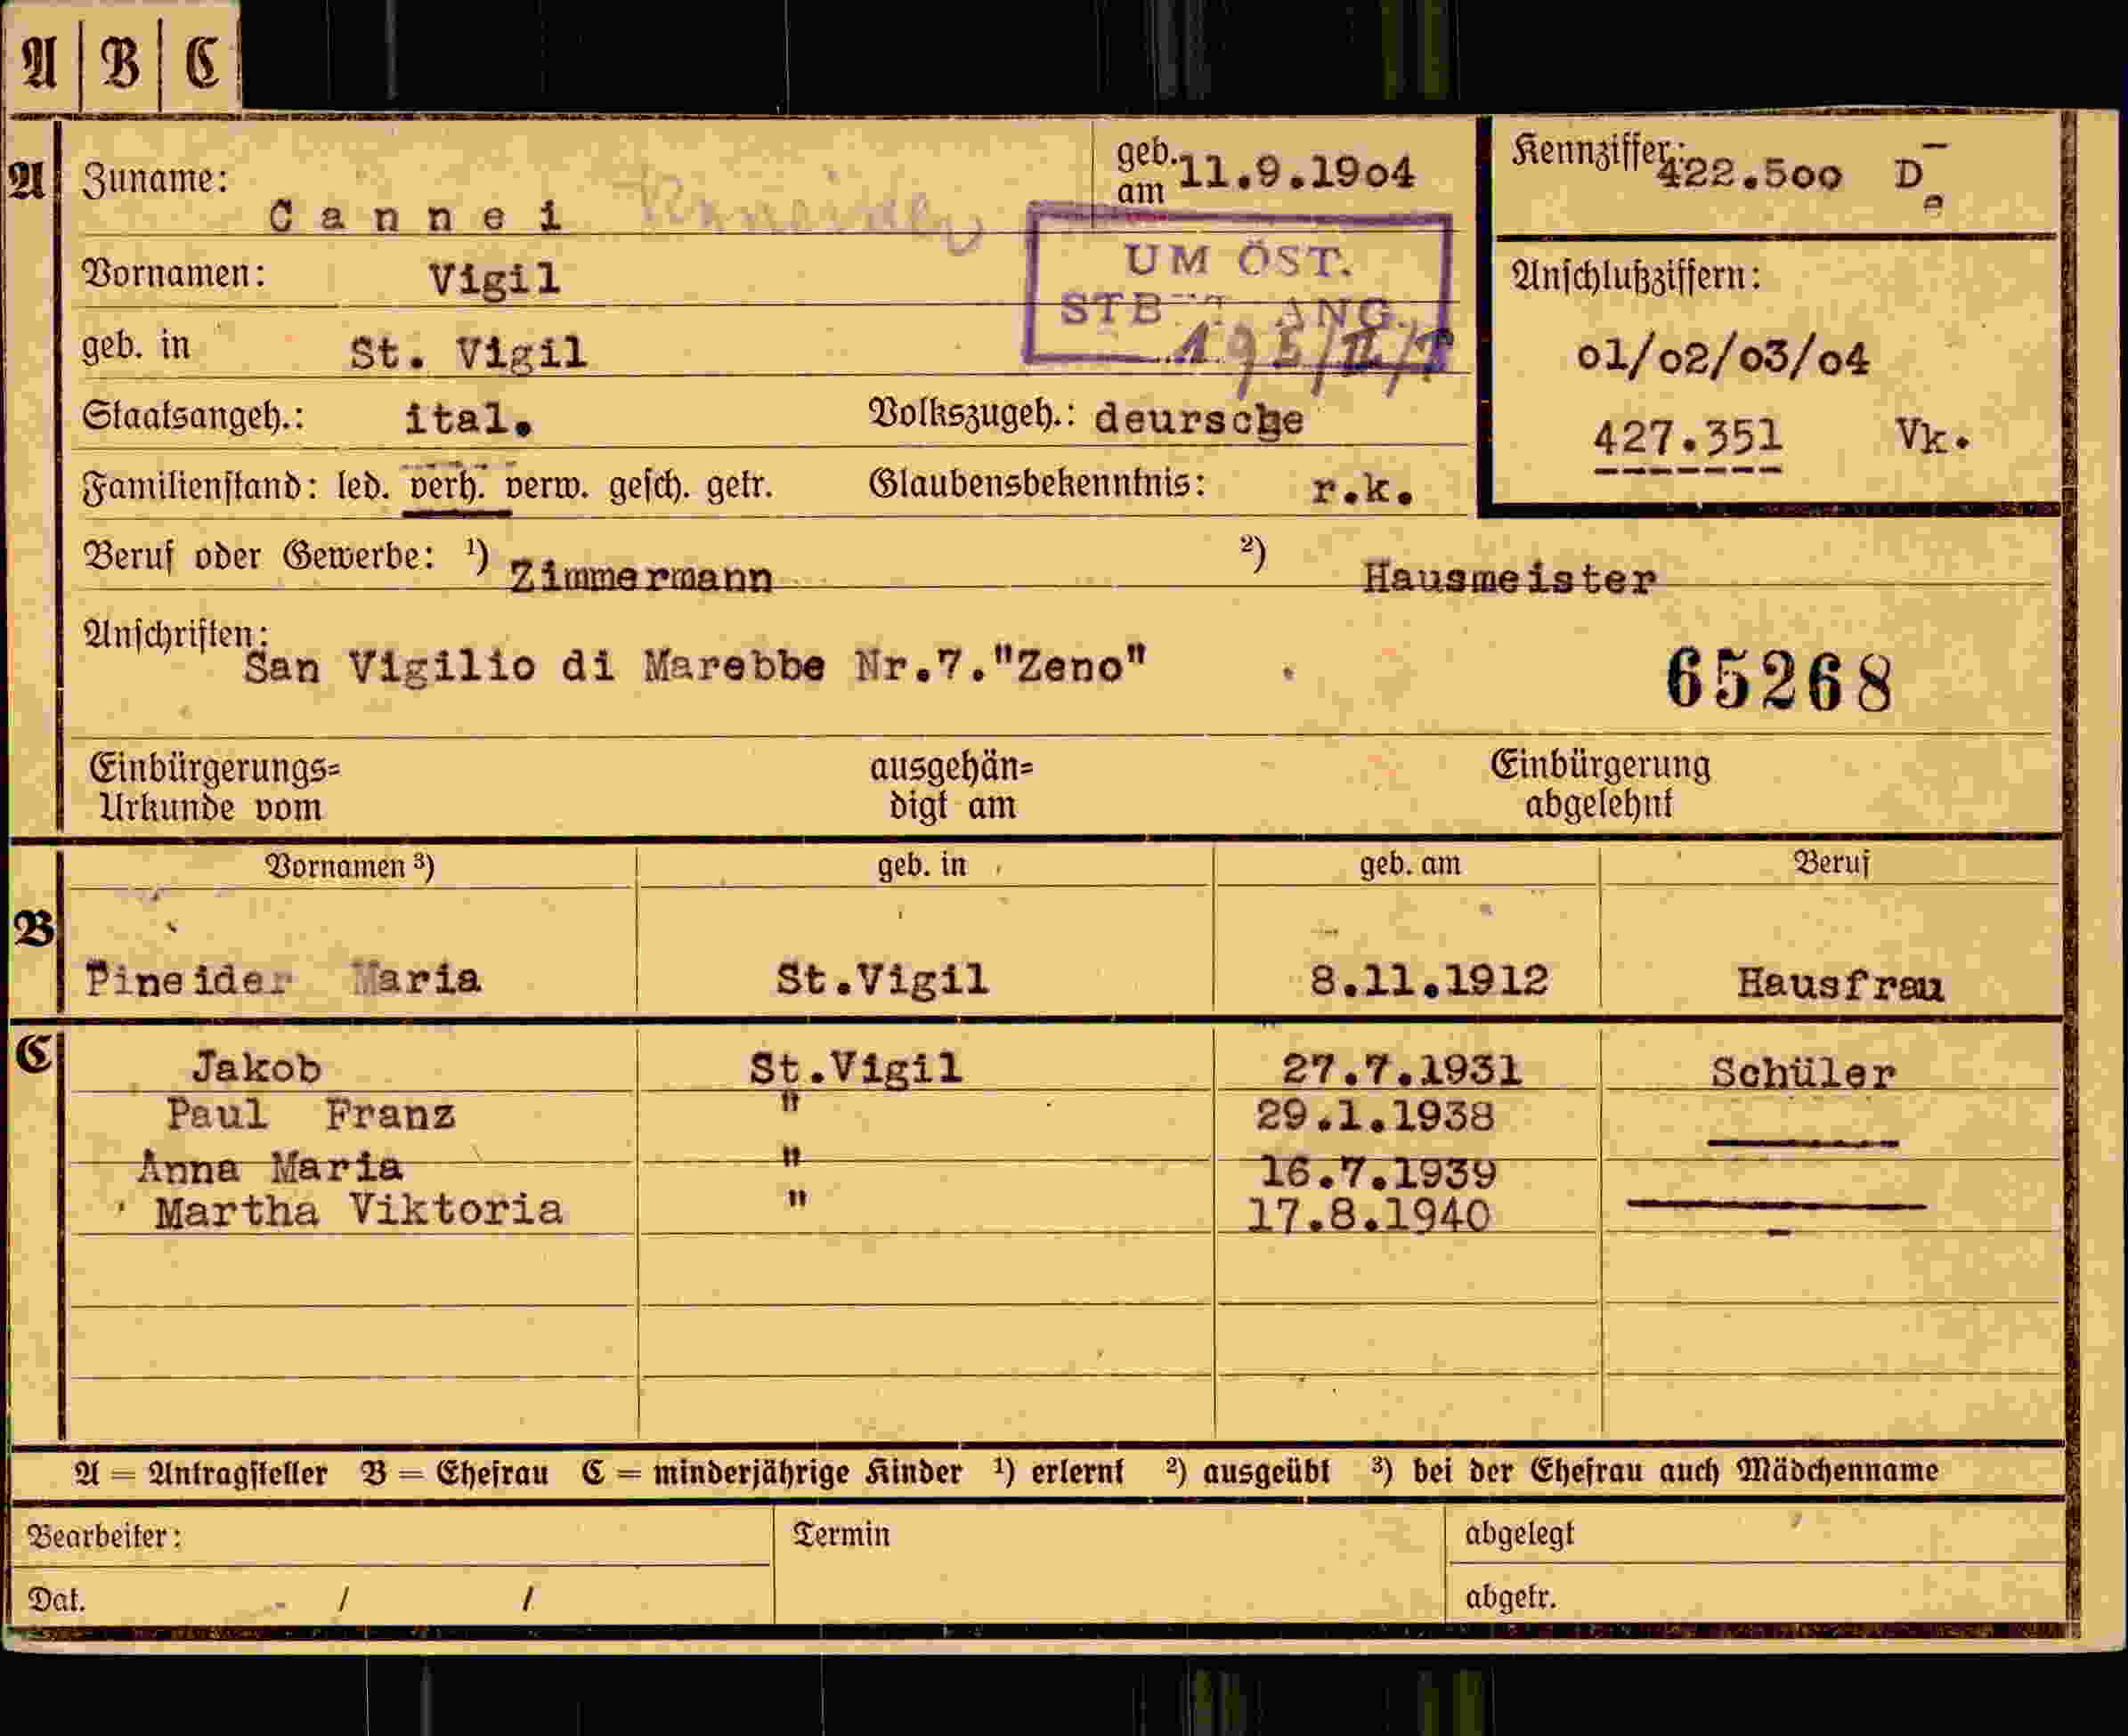 A B C
A Zuname: Cannei
geb. am 11.9.1904
Kennziffer: 422.500 D
Vornamen: Vigil
UM ÖST.
Anschlußziffern:
geb. in St. Vigil
01/02/03/04
Staatsangeh.: ital. Volkszugeh.: deursche
427.351 Vk.
Familienstand: led. verh. verw. gesch. getr. Glaubensbekenntnis: r.k.
Beruf oder Gewerbe: 1) Zimmermann 2) Hausmeister
Anschriften: San Vigilio di Marebbe Nr.7."Zeno"
65268
Einbürgerungs= Urkunde vom
ausgehän= digt am
Einbürgerung abgelehnt
Vornamen 3) geb. in geb. am Beruf
B Pineider Maria St.Vigil 8.11.1912 Hausfrau
C Jakob St.Vigil 27.7.1931 Schüler
Paul Franz " 29.1.1938
Anna Maria " 16.7.1939
Martha Viktoria " 17.8.1940
A = Antragsteller B = Ehefrau C = minderjährige Kinder 1) erlernt 2) ausgeübt 3) bei der Ehefrau auch Mädchenname
Bearbeiter: Termin abgelegt
Dat. / / abgetr.